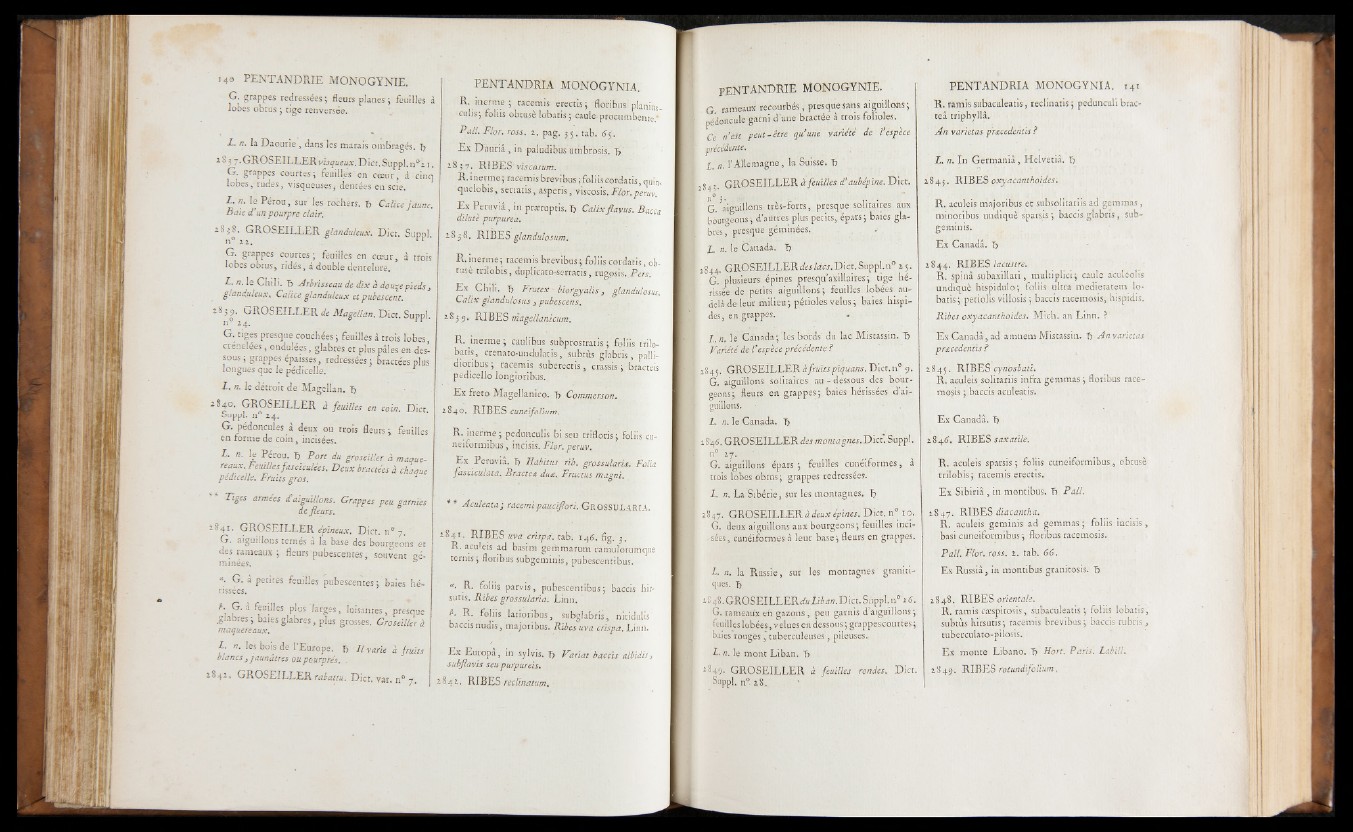 140 PENTANDRIE MONOGYNIE.
G. grappes redressées; fleurs planes; feuilles à
lobes obtus; tige renversée.
L. n. la Daourie, dans les marais ombragés. ♄
2837. GROSEILLER visqueux. Dict. Suppl. n° 21.
G. grappes courtes; feuilles en cœur, à cinq
lobes, rudes, visqueuses, dentées en scie.
L. n. le Pérou, sur les rochers. ♄ Calice jaune.
Baie d'un pourpre clair.
2838. GROSEILLER glanduleux. Dict. Suppl.
n° 22.
G. grappes courtes; feuilles en cœur, à trois
lobes obtus, ridés, à double dentelure.
L. n. le Chili. ♄ Arbrisseau de dix à douze pieds,
glanduleux. Calice glanduleux et pubescent.
2839. GROSEILLER de Magellan. Dict. Suppl.
n° 24.
G. tiges presque couchées; feuilles à trois lobes,
crénelées, ondulées, glabres et plus pâles en des-
sous; grappes épaisses, redressées; bractées plus
longues que le pédicelle.
L. n. le détroit de Magellan. ♄
2840. GROSEILLER à feuilles en coin. Dict.
Suppl. n° 24.
G. pédoncules à deux ou trois fleurs; feuilles
en forme de coin, incisées.
L. n. le Pérou. ♄ Port du groseiller à maque-
reaux. Feuilles fasciculées. Deux bractées à chaque
pédicelle. Fruits gros.
** Tiges armées d'aiguillons. Grappes peu garnies
de fleurs.
2841. GROSEILLER épineux. Dict. n° 7.
G. aiguillons ternés à la base des bourgeons et
des rameaux; fleurs pubescentes, souvent gé-
minées.
α. G. à petites feuilles pubescentes; baies hé-
rissées.
β. G. à feuilles plus larges, luisantes, presque
glabres; baies glabres, plus grosses. Groseiller à
maquereaux.
L. n. les bois de l'Europe. ♄ Il varie à fruits
blancs, jaunâtres ou pourprés.
2842. GROSEILLER rabattu. Dict. var. n° 7.
PENTANDRIA MONOGYNIA.
R. inerme; racemis erectis; floribus planius-
culis; foliis obtusè lobatis; caule procumbente.
Pall. Flor. ross. 2. pag. 35. tab. 65.
Ex Douriâ, in paludibus umbrosis. ♄
2837. RIBES viscosum.
R. inerme; racemis brevibus; foliis cordatis, quin-
quelobis, serratis, asperis, viscosis. Flor. peruv.
Ex Peruviâ, in præruptis. ♄ Calix flavus. Bacca
dilutè purpurea.
2838. RIBES glandulosum.
R. inerme; racemis brevibus; foliis cordatis, ob-
tusè trilobis, duplicato-serratis, rugosis. Pers.
Ex Chili. ♄ Frutex biorgyalis, glandulosus.
Calix glandulosus, pubescens.
2839. RIBES magellanicum.
R. inerme; caulibus subprostratis; foliis trilo-
batis, crenato-undulatis, subtùs glabris, palli-
dioribus; racemis suberectis, crassis; bracteis
pedicello longioribus.
Ex freto Magellanico. ♄ Commerson.
2840. RIBES cuneifolium.
R. inerme; pedunculis bi seu trifloris; foliis cu-
neiformibus, incisis. Flor. peruv.
Ex Peruviâ. ♄ Habitus rib. grossulariæ. Folia
fasciculata. Bracteæ duæ. Fructus magni.
** Aculeata; racemi pauciflori. GROSSULARIA.
2841. RIBES uva crispa. tab. 146. fig. 3.
R. aculeis ad basim gemmarum ramulorumque
ternis; floribus subgeminis, pubescentibus.
α. R. foliis parvis, pubescentibus; baccis hir-
sutis. Ribes grossularia. Linn.
β. R. foliis latioribus, subglabris, nitidulis
baccis nudis, majoribus. Ribes uva crispa. Linn.
Ex Europâ, in sylvis. ♄ Variat baccis albidis,
subflavis seu purpureis.
2842. RIBES reclinatum.
PENTANDRIE MONOGYNIE.
G. rameaux recourbés, presque sans aiguillons;
pédoncule garni d'une bractée à trois folioles.
Ce n'est peut-être qu'une variété de l'espèce
précédente.
L. n. l'Allemagne, la Suisse. ♄
2843. GROSEILLER à feuilles d'aubépine. Dict.
n° 3.
G. aiguillons très-forts, presque solitaires aux
bourgeons; d'autres plus petits, épars; baies gla-
bres, presque géminées.
L. n. le Canada. ♄
2844. GROSEILLER des lacs. Dict. Suppl. n° 25.
G. plusieurs épines presqu'axillaires; tige hé-
rissée de petits aiguillons; feuilles lobées au-
delà de leur milieu; pétioles velus; baies hispi-
des, en grappes.
L. n. le Canada; les bords du lac Mistassin. ♄
Variété de l'espèce précédente?
2845. GROSEILLER à fruits piquans. Dict. n° 9.
G. aiguillons solitaires au-dessous des bour-
geons; fleurs en grappes; baies hérissées d'ai-
guillons.
L. n. le Canada. ♄
2846. GROSEILLER des montagnes. Dict. Suppl.
n° 27.
G. aiguillons épars; feuilles cunéiformes, à
trois lobes obtus; grappes redressées.
L. n. La Sibérie, sur les montagnes. ♄
2847. GROSEILLER à deux épines. Dict. n° 10.
G. deux aiguillons aux bourgeons; feuilles inci-
sées, cunéiformes à leur base; fleurs en grappes.
L. n. la Russie, sur les montagnes graniti-
ques. ♄
2848. GROSEILLER du Liban. Dict. Suppl. n° 26.
G. rameaux en gazons, peu garnis d'aiguillons;
feuilles lobées, velues en dessous; grappes courtes;
baies rouges, tuberculeuses, pileuses.
L. n. le mont Liban. ♄
2849. GROSEILLER à feuilles rondes. Dict.
Suppl. n° 28.
PENTANDRIA MONOGYNIA. 141
R. ramis subaculeatis, reclinatis; pedunculi brac-
teâ triphyllâ.
An varietas præcedentis?
L. n. In Germaniâ, Helvetiâ. ♄
2843. RIBES oxyacanthoides.
R. aculeis majoribus et subsolitariis ad gemmas,
minoribus undiquè sparsis; baccis glabris, sub-
geminis.
Ex Canadâ. ♄
2844. RIBES lacustre.
R. spinâ subaxillari, multiplici; caule aculeolis
undiquè hispidulo; foliis ultra medietatem lo-
batis; petiolis villosis; baccis racemosis, hispidis.
Ribes oxyacanthoides. Mich. an Linn.?
Ex Canadâ, ad amnem Mistassin. ♄ An varietas
præcedentis?
2845. RIBES cynosbati.
R. aculeis solitariis infra gemmas; floribus race-
mosis; baccis aculeatis.
Ex Canadâ. ♄
2846. RIBES saxatile.
R. aculeis sparsis; foliis cuneiformibus, obtusè
trilobis; racemis erectis.
Ex Sibiriâ, in montibus. ♄ Pall.
2847. RIBES diacantha.
R. aculeis geminis ad gemmas; foliis incisis,
basi cuneiformibus; floribus racemosis.
Pall. Flor. ross. 2. tab. 66.
Ex Russiâ, in montibus granitosis. ♄
2848. RIBES orientale.
R. ramis cæspitosis, subaculeatis; foliis lobatis,
subtùs hirsutis; racemis brevibus; baccis rubris,
tuberculato-pilosis.
Ex monte Libano. ♄ Hort. Paris. Labill.
2849. RIBES rotundifolium.